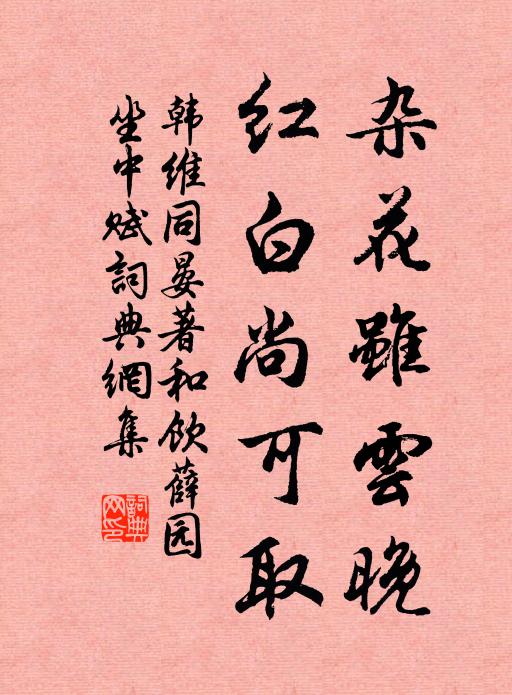 杂花雖雲晚
紅白尚可取
韩維同晏著和飲薛园
坐中赋詞典網集
詞典网印